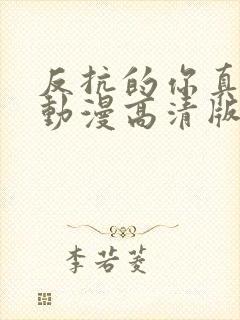 反抗的你真
動漫高清版
李若菱